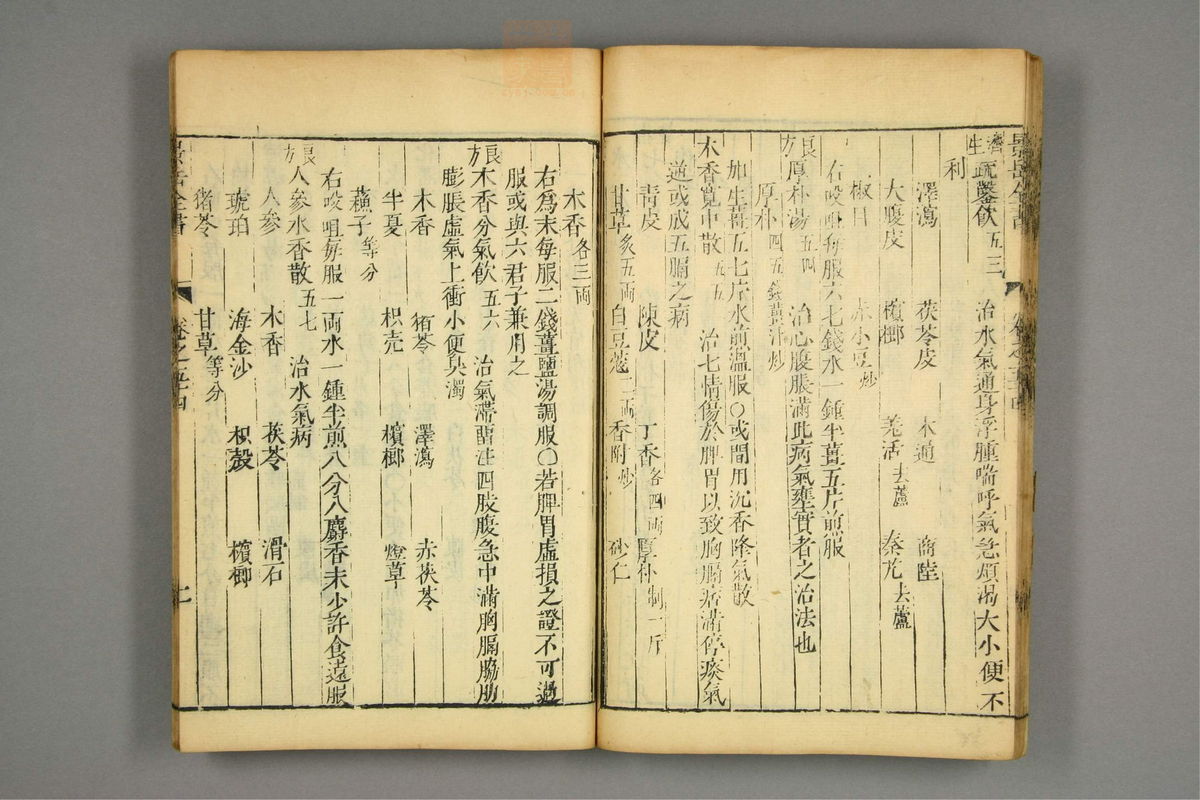 景岳全書
卷之五十四
濟生 疏鑿飲 五三 治水氣通身浮腫喘呼氣急煩渴大小便不
利
澤瀉 茯苓皮 木通 商陸
大腹皮 檳榔 羌活 去蘆 秦艽 去蘆
椒目 赤小豆 炒
右㕮咀每服六七錢水一鍾半薑五片煎服
良方 厚朴湯 五四 治心腹脹滿此病氣壅實者之治法也
厚朴
如生薑五七片水煎溫服○或間用沉香降氣散
木香寬中散 五五 治七情傷於脾胃以致胸膈痞滿停痰氣
逆或成五膈之病
青皮 陳皮 丁香 各四兩 厚朴 制一斤
甘草 炙五兩 白豆蔲 二兩 香附 炒 砂仁
木香 各三兩
右爲末每服二錢薑鹽湯調服○若脾胃虛損之證不可過
服或與六君子兼用之
良方 木香分氣飲 五六 治氣滯留注四肢腹急中滿胸膈脇肋
膨脹虛氣上衝小便臭濁
木香 猪苓 澤瀉 赤茯苓
半夏 枳壳 檳榔 燈草
蘓子 等分
右㕮咀每服一兩水一鍾半煎八分入麝香末少許食遠服
良方 人參木香散 五七 治水氣病
人參 木香 茯苓 滑石
琥珀 海金沙 枳殼 檳榔
猪苓 甘草 等分
景岳全書
卷之五十四